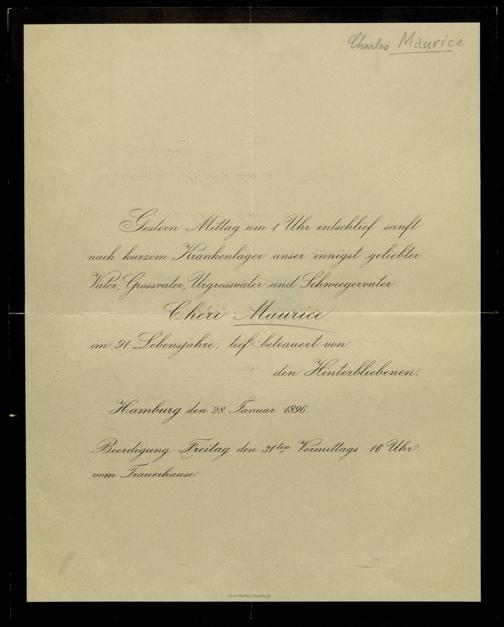 Charles Maurice
Gestern Mittag um 1 Uhr entschlief sanft
nach kurzem Krankenlager unser innigst geliebter
Vater, Grossvater, Urgrossvater und Schwiegervater
Chéri Maurice
im 91. Lebensjahre, tief betrauert von
den Hinterbliebenen.
Hamburg den 28. Januar 1896.
Beerdigung: Freitag den 31ten Vormittags Uhr
vom Trauerhause.